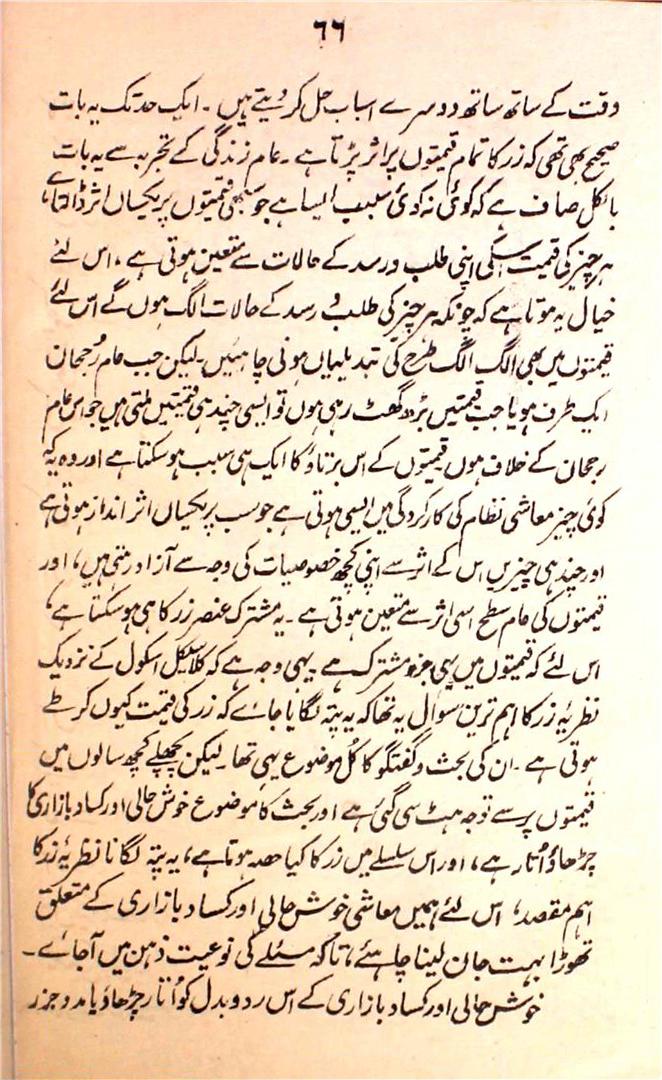 ۶۶
وقت کے ساتھ ساتھ دوسرے اسباب حل کر دیتے ہیں ۔ ایک حد تک یہ بات
صحیح بھی تھی کہ زر کا تمام قیمتوں پر اثر پڑتا ہے ۔ عام زندگی کے تجربہ سے یہ بات
بالکل صاف ہے کہ کوئی نہ کوئی سبب ایسا ہے جو سبھی قیمتوں پر یکساں اثر ڈالتا ہے،
ہر چیز کی قیمت اسکی اپنی طلب و رسد کے حالات سے متعین ہوتی ہے ۔ اس لئے
خیال یہ ہوتا ہے کہ چونکہ ہر چیز کی طلب و رسد کے حالات الگ ہوں گے اس لئے
قیمتوں میں بھی الگ الگ طرح کی تبدیلیاں ہونی چاہئیں ۔ لیکن جب عام رُجحان
ایک طرف ہو یا جب قیمتیں بڑھ گھٹ رہی ہوں تو ایسی چند ہی قیمتیں ملتی ہیں جو اس عام
رجحان کے خلاف ہوں قیمتوں کے اس برتاؤ کا ایک ہی سبب ہو سکتا ہے اور وہ یہ کہ
کوئی چیز معاشی نظام کی کارکردگی میں ایسی ہوتی ہے جو سب پر یکساں اثر انداز ہوتی ہے
اور چند ہی چیزیں اس کے اثر سے اپنی کچھ خصوصیات کی وجہ سے آزاد رہتی ہیں ، اور
قیمتوں کی عام سطح اسی اثر سے متعین ہوتی ہے ۔ یہ مشترک عنصر زر کا ہی ہو سکتا ہے ،
اس لئے کہ قیمتوں میں یہی جزو مشترک ہے ۔ یہی وجہ ہے کہ کلاسیکل اسکول کے نزدیک
نظریۂ زر کا اہم ترین سوال یہ تھا کہ یہ پتہ لگایا جائے کہ زر کی قیمت کیوں کر طے
ہوتی ہے ۔ ان کی بحث و گفتگو کا کُل موضوع یہی تھا ۔ لیکن پچھلے کچھ سالوں میں
قیمتوں پر سے توجہ ہٹ سی گئی ہے اور بحث کا موضوع خوش حالی اور کساد بازاری کا
چڑھاؤ اُتار ہے ، اور اس سلسلے میں زر کا کیا حصہ ہوتا ہے ، یہ پتہ لگانا نظریۂ زر کا
اہم مقصد ، اس لئے ہمیں معاشی خوش حالی اور کساد بازاری کے متعلق
تھوڑا بہت جان لینا چاہئے ، تاکہ مسئلے کی نوعیت ذہن میں آ جائے ۔
خوش حالی اور کساد بازاری کے اس رد و بدل کو اُتار چڑھاؤ یا مد و جزر